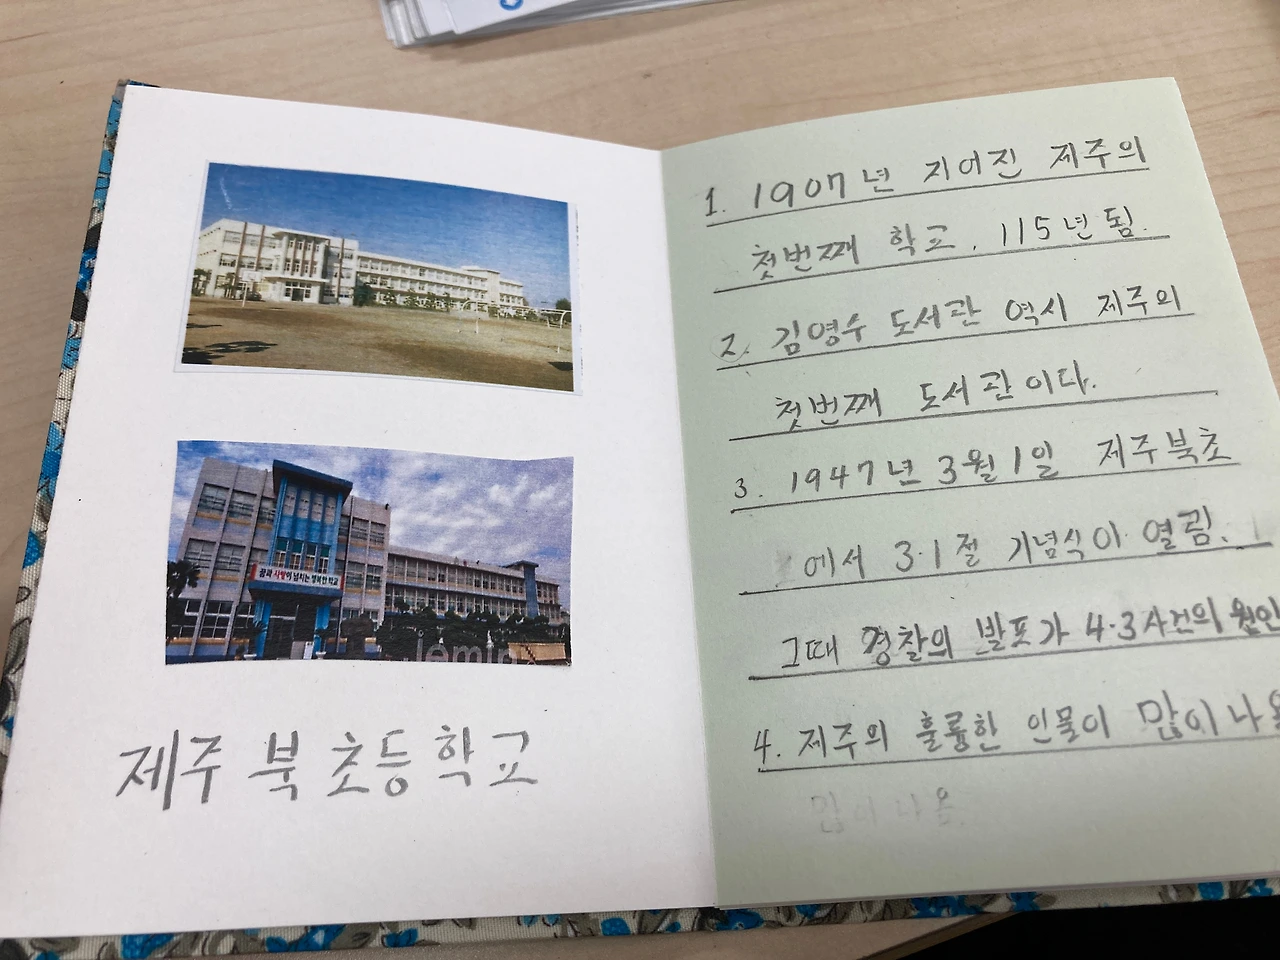 꿈과 사랑이 넘치는 행복한 학교
jemin
제주 북 초등 학교
1. 1907년 지어진 제주의
첫번째 학교. 115년 됨.
2. 김영수 도서관 역시 제주의
첫번째 도서관이다.
3. 1947년 3월 1일 제주북초
에서 3·1절 기념식이 열림.
그때 경찰의 발포가 4·3사건의 원인
4. 제주의 훌륭한 인물이 많이 나옴
많이 나온.